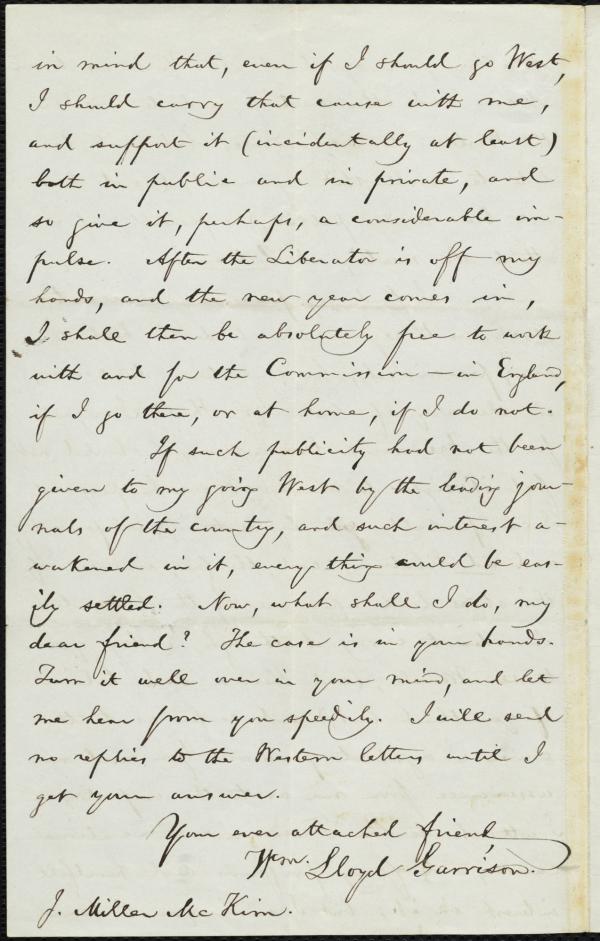 in mind that, even if I should go West,
I should carry that cause with me,
and support it (incidentally at least)
both in public and in private, and
so give it, perhaps, a considerable im-
pulse. After the Liberator is off my
hands, and the new year comes in,
I shall then be absolutely free to work
with and for the Commission—in England,
if I go there, or at home, if I do not.
If such publicity had not been
given to my going West by the leading jour-
nals of the country, and such interest a-
wakened in it, every thing could be eas-
ily settled. Now, what shall I do, my
dear friend? The case is in your hands.
Turn it well over in your mind, and let
me hear from you speedily. I will send
no replies to the Western letters until I
get your answer.
Your ever attached friend,
Wm. Lloyd Garrison.
J. Miller McKim.